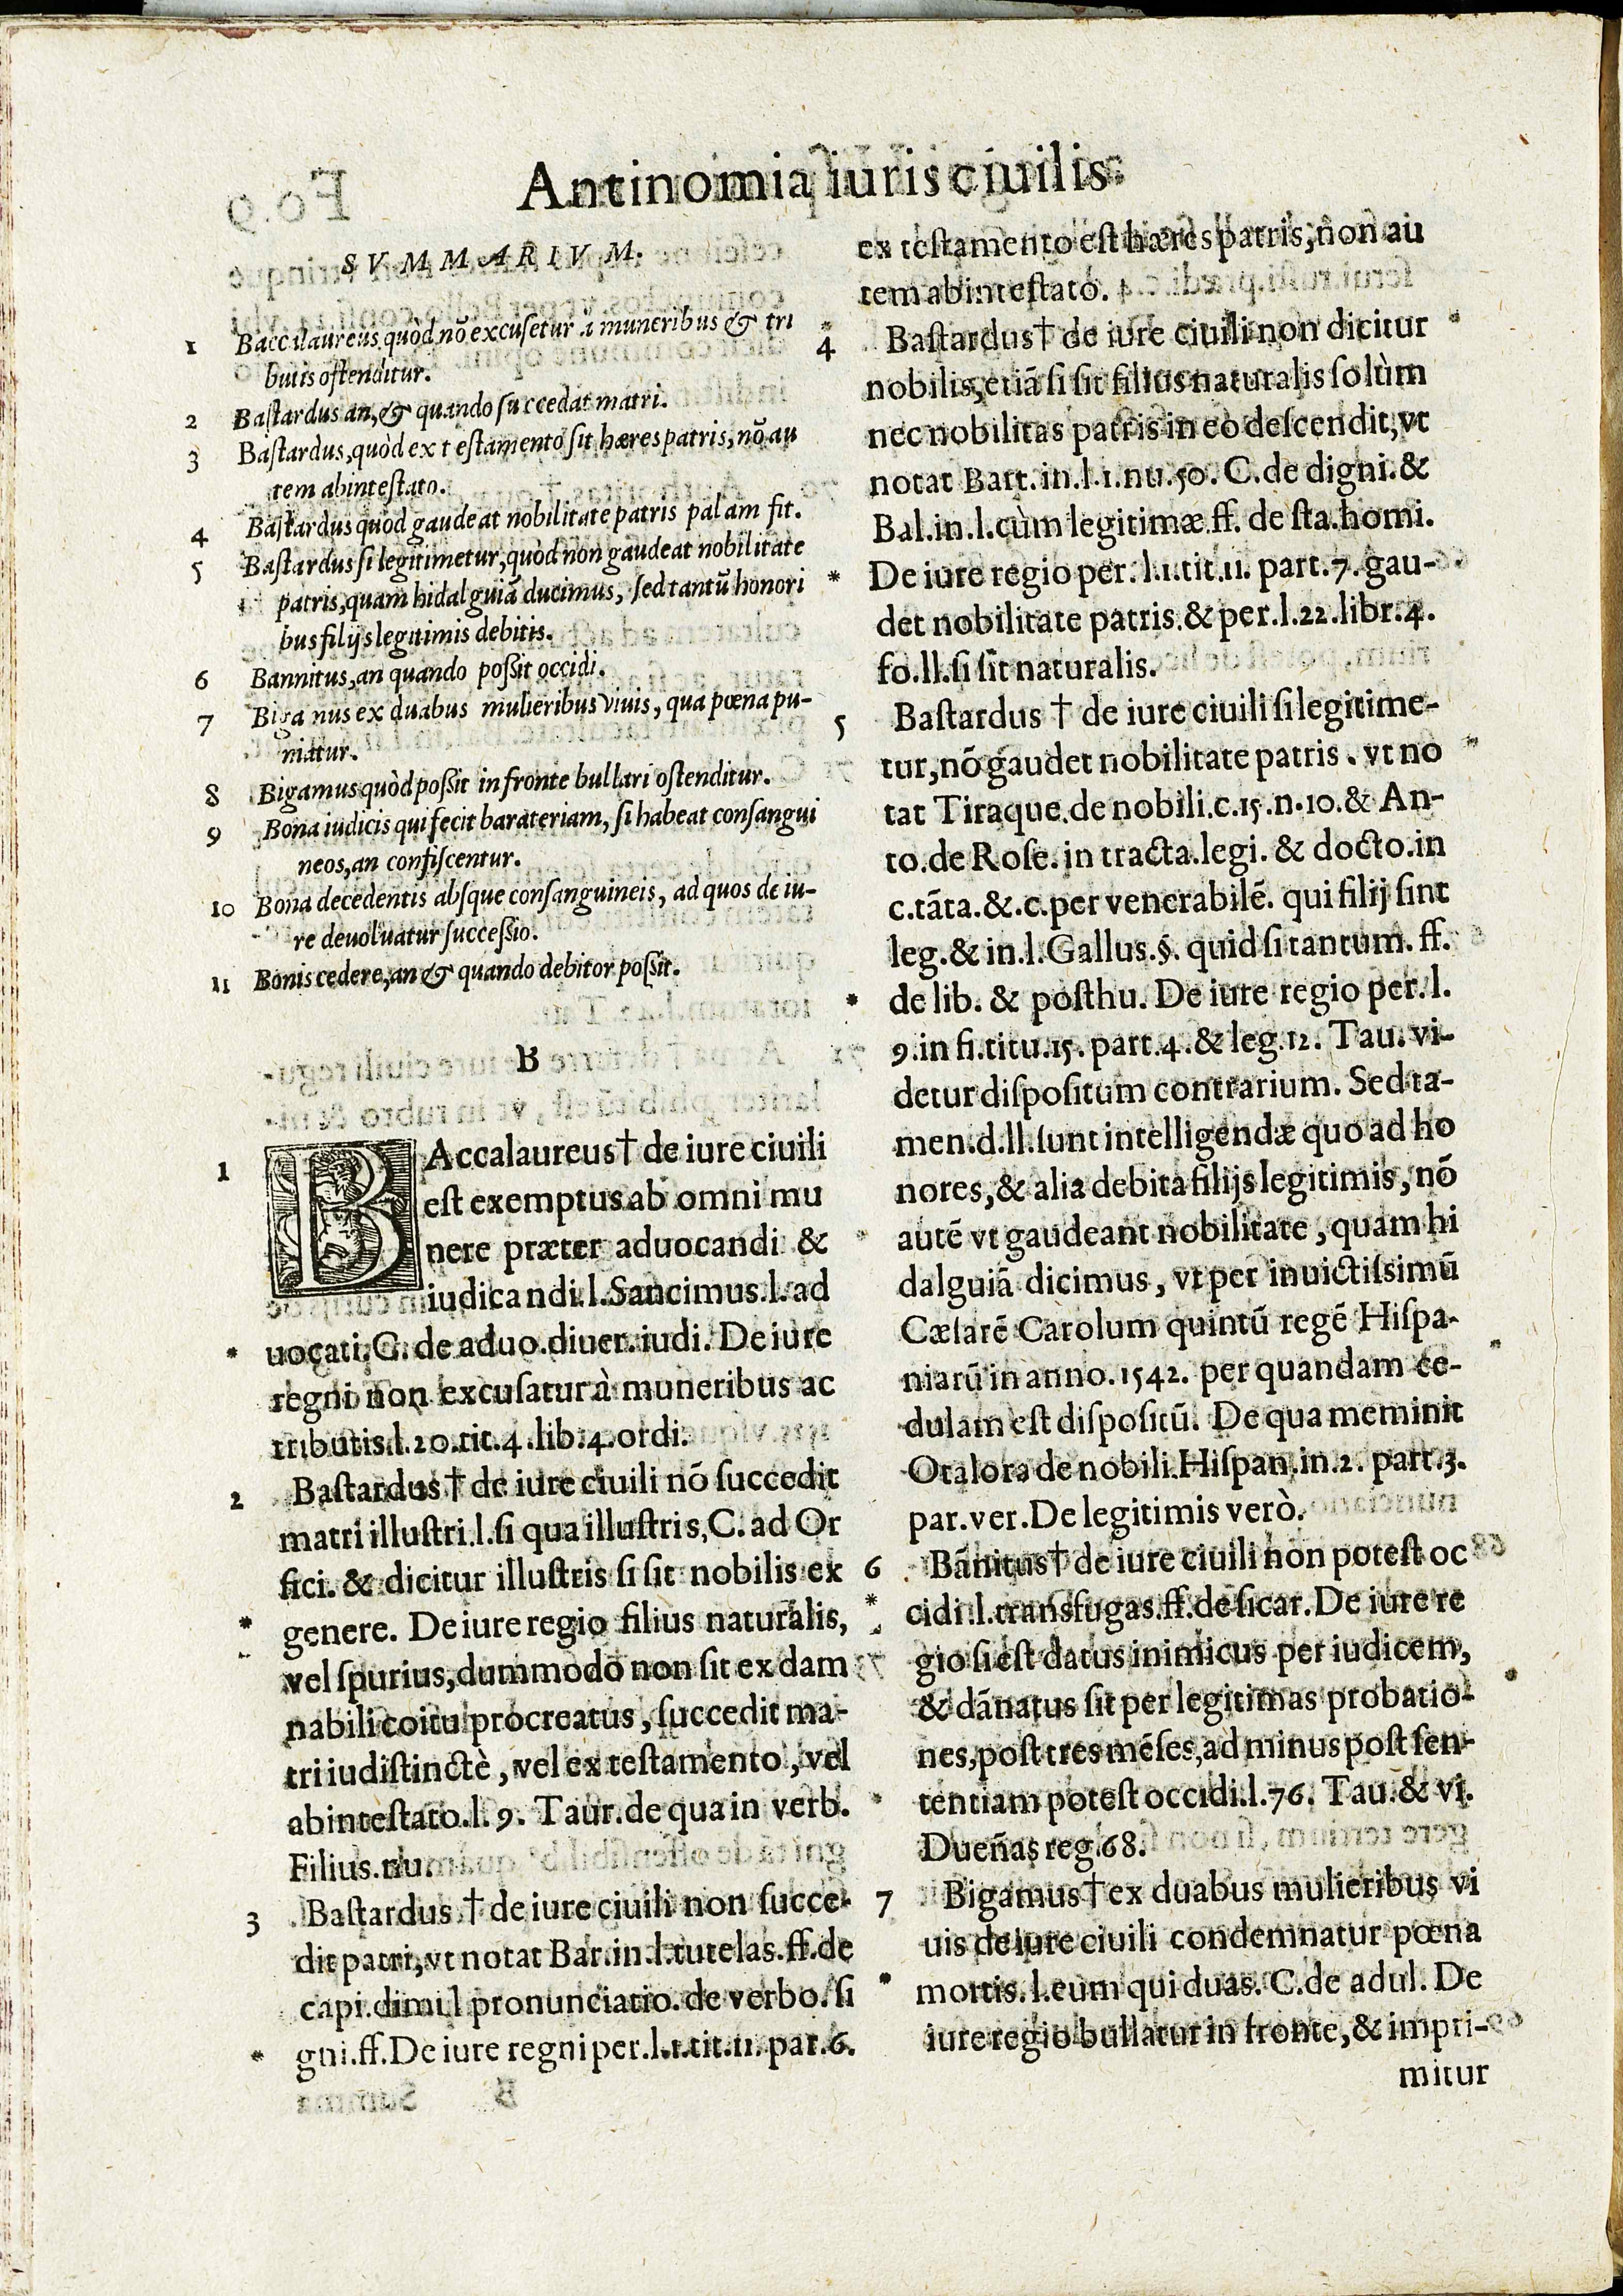 Antinomia iuris ciuilis.
SVMMARIVM.
1 Baccalaureus quòd nõ excusetur à muneribus & tri
butis ostenditur.
2 Bastardus an, & quando succedat matri.
3 Bastardus, quòd ex testamento sit hæres patris, nõ au
tem abintestato.
4 Bastardus quòd gaudeat nobilitate patris palam fit.
5 Bastardus si legitimetur, quòd non gaudeat nobilitate
patris, quam hidalguiã ducimus, sed tantũ honori
bus filijs legitimis debitis.
6 Bannitus, an quando possit occidi.
7 Biganus ex duabus mulieribus viuis, qua pœna pu-
niatur.
8 Bigamus quòd possit in fronte bullari ostenditur.
9 Bona iudicis qui fecit barateriam, si habeat consangui
neos, an confiscentur.
10 Bona decedentis absque consanguineis, ad quos de iu-
re deuoluatur successio.
11 Bonis cedere, an & quando debitor possit.
B
1 BAccalaureus † de iure ciuili
est exemptus ab omni mu
nere præter aduocandi &
iudicandi. l. Sancimus. l. ad
* uocati. C. de aduo. diuer. iudi. De iure
regni non excusatur à muneribus ac
tributis. l. 20. tit. 4. lib. 4. ordi.
2 Bastardus † de iure ciuili nõ succedit
matri illustri. l. si qua illustris, C. ad Or
fici. & dicitur illustris si sit nobilis ex
* genere. De iure regio filius naturalis,
vel spurius, dummodo non sit ex dam
nabili coitu procreatus, succedit ma-
tri iudistinctè, vel ex testamento, vel
abintestato. l. 9. Taur. de qua in verb.
Filius. nu.
3 Bastardus † de iure ciuili non succe-
dit patri, vt notat Bar. in. l. tutelas. ff. de
capi. dimi. l pronunciatio. de verbo. si
* gni. ff. De iure regni per. l. 1. tit. 11. par. 6.
ex testamento est hæres patris, non au
tem abintestato.
4 Bastardus † de iure ciuili non dicitur
nobilis, etiã si sit filius naturalis solùm
nec nobilitas patris in eo descendit, vt
notat Bart. in. l. 1. nu. 50. C. de digni. &
Bal. in. l. cùm legitimæ. ff. de sta. homi.
* De iure regio per. l. 1. tit. 11. part. 7. gau-
det nobilitate patris. & per. l. 22. libr. 4.
fo. ll. si sit naturalis.
5 Bastardus † de iure ciuili si legitime-
tur, nõ gaudet nobilitate patris. vt no
tat Tiraque. de nobili. c. 15. n. 10. & An-
to. de Rose. in tracta. legi. & docto. in
c. tãta. &. c. per venerabilẽ. qui filij sint
leg. & in. l. Gallus. §. quid si tantum. ff.
* de lib. & posthu. De iure regio per. l.
9. in fi. titu. 15. part. 4. & leg. 12. Tau. vi-
detur dispositum contrarium. Sed ta-
men. d. ll. sunt intelligendæ quo ad ho
nores, & alia debita filijs legitimis, nõ
autẽ vt gaudeant nobilitate, quam hi
dalguiã dicimus, vt per inuictissimũ
Cæsarẽ Carolum quintũ regẽ Hispa-
niarũ in anno. 1542. per quandam ce-
dulam est dispositũ. De qua meminit
Otalora de nobili. Hispan. in. 2. part. 3.
par. ver. De legitimis verò.
6 Bãnitus † de iure ciuili non potest oc
* cidi. l. transfugas. ff. de sicar. De iure re
gio si est datus inimicus per iudicem,
& dãnatus sit per legitimas probatio-
nes, post tres mẽses, ad minus post sen-
tentiam potest occidi. l. 76. Tau. & vi.
Dueñas reg. 68.
7 Bigamus † ex duabus mulieribus vi
uis de iure ciuili condemnatur pœna
* mortis. l. eum qui duas. C. de adul. De
iure regio bullatur in fronte, & impri-
mitur